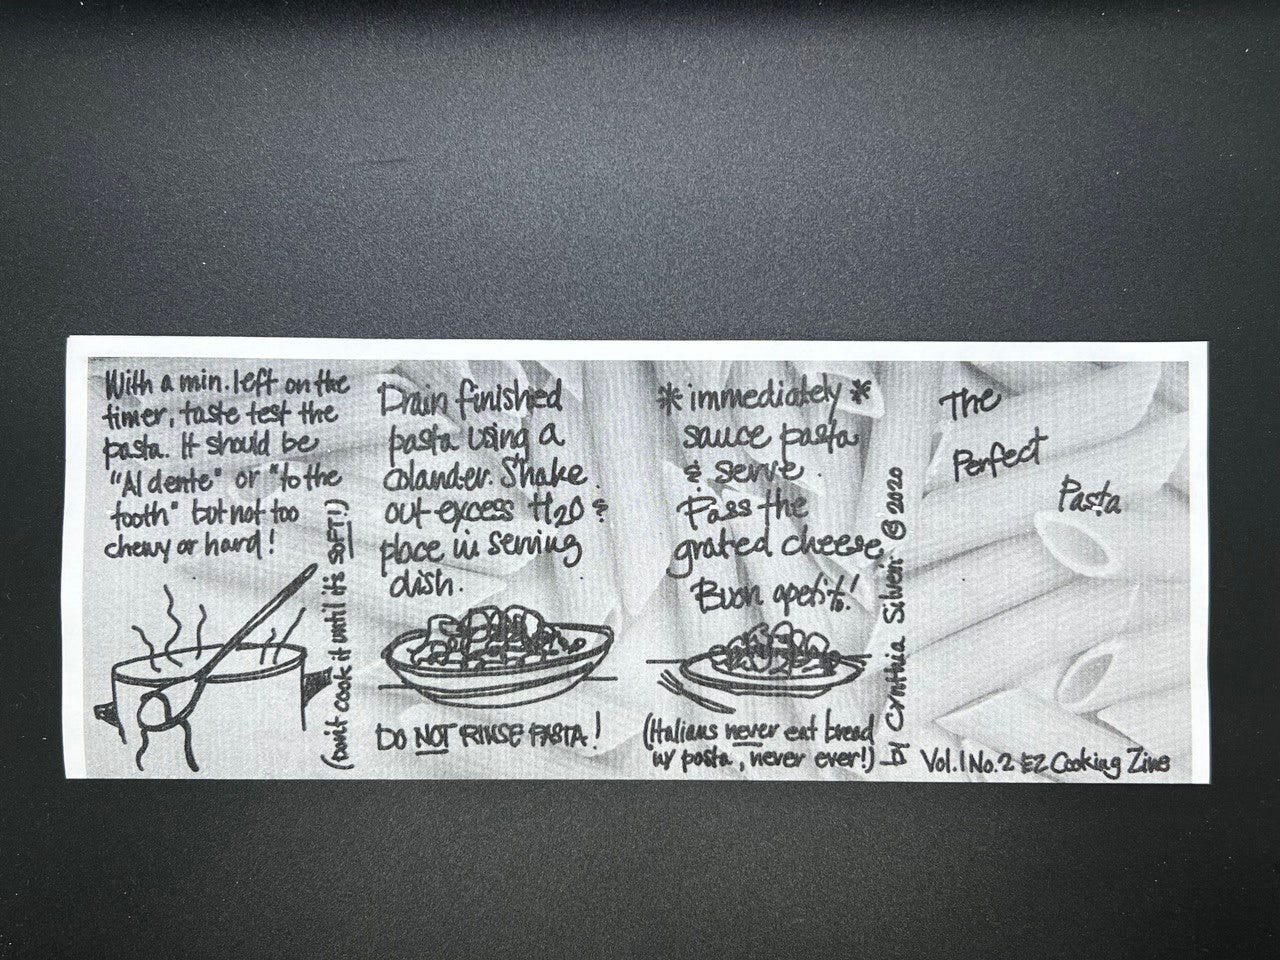 With a min. left on the
timer, taste test the
pasta. It should be
"Al dente" or "to the
tooth" but not too
chewy or hard!
(don't cook it until it's SOFT!)
Drain finished
pasta using a
colander. Shake
out excess H2O &
place in serving
dish.
DO NOT RINSE PASTA!
* immediately *
sauce pasta
& serve.
Pass the
grated cheese
Buon apetito!
(Italians never eat bread
w/ pasta, never ever!)
by Cynthia Silveri © 2020
The
Perfect
Pasta
Vol.1 No.2 EZ Cooking Zine